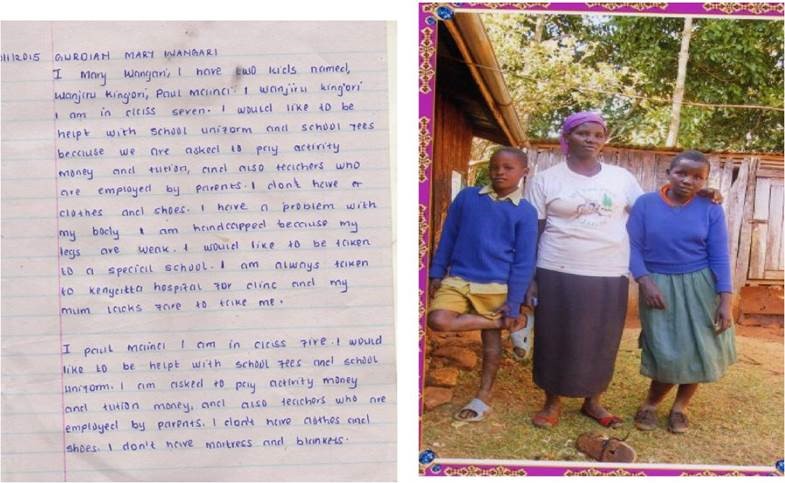 1/1/2015 GURDIAN MARY WANGARI
I Mary Wangari, I have two kids named,
Wanjiru King'ori, Paul Mainai. I wanjiru king'ori
I am in class seven. I would like to be
helpt with school uniform and school fees
because we are asked to pay activity
money and tution, and also teachers who
are employed by parents. I don't have
clothes and shoes. I have a problem with
my body I am handcapped because my
legs are weak. I would like to be taken
to a special school. I am always taken
to kenyatta hospital for clinc and my
mum lacks fare to take me.
I paul mainai I am in class five. I would
like to be helpt with school fees and school
uniform. I am asked to pay activity money
and tution money, and also teachers who are
employed by parents. I don't have clothes and
shoes. I don't have matress and blankets.